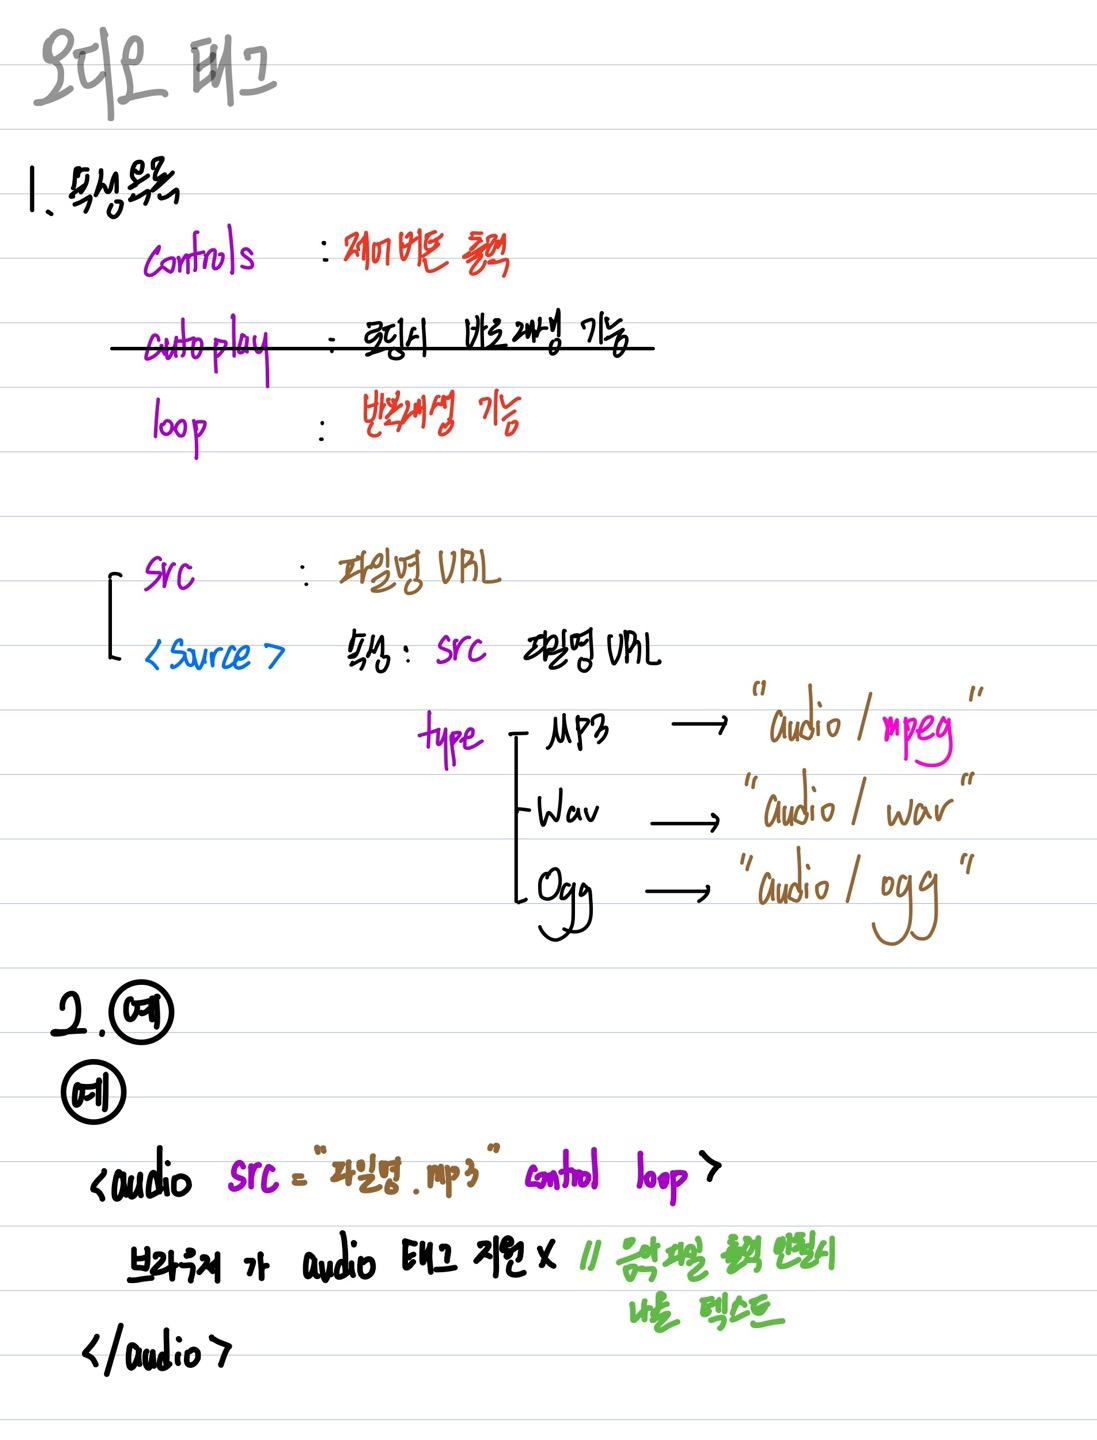 오디오 태그
1. 속성목록
controls : 제어버튼 출력
autoplay : 로딩시 바로재생 기능
loop : 반복재생 기능
src : 파일명 URL
<Source> 속성 : src 파일명 URL
type MP3 → "audio / mpeg"
Wav → "audio / wav"
Ogg → "audio / ogg"
2. 예
예
<audio src = "파일명.mp3" control loop>
브라우저 가 audio 태그 지원 X // 음악파일 출력 안될시
나올 텍스트
</audio>